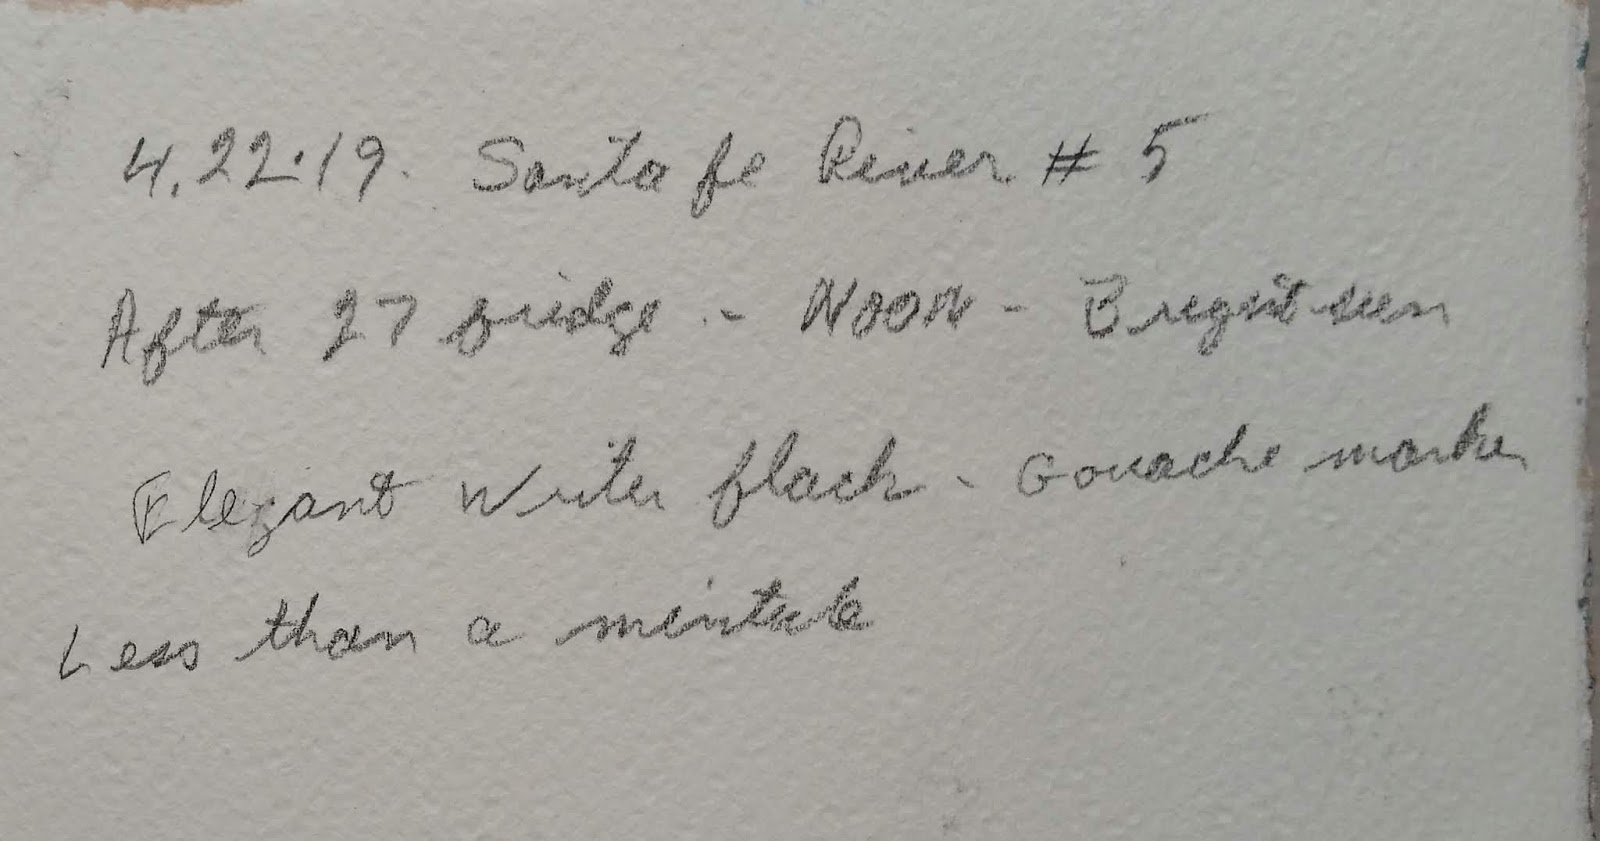 4.22.19. Santa fe River # 5
After 27 bridge - Noon - Bright sun
Elegant Writer black - Gouache marker
Less than a minute